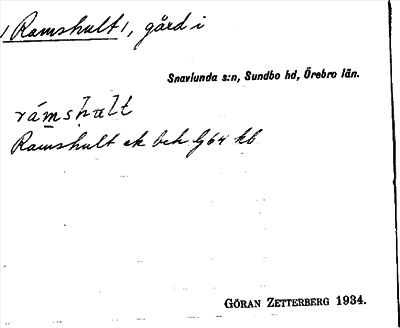 /Ramshult/, gård i
Snavlunda s:n, Sundbo hd, Örebro län.
rámshult
Ramshult ek beh lj64 kb
GÖRAN ZETTERBERG 1934.